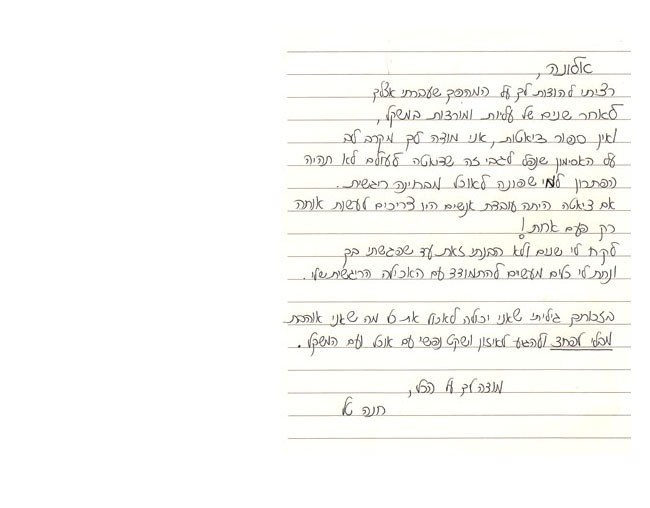 אלונה,
רציתי להודות לך על המהפך שעברתי אצלך
לאחר שנים של עליות ומורדות במשקל,
ואין ספור דיאטות, אני מודה לך מקרב לב
על האסימון שנפל לגבי זה שדיאטה לעולם לא תהיה
הפתרון למי שפונה לאוכל מבחינה ריגשית.
אם דיאטה היתה עובדת אנשים היו צריכים לעשות אותה
רק פעם אחת!
לקח לי שנים ולא הבנתי זאת עד שפגשתי בך
ונתת לי כלים מעשים להתמודד עם האכילה הריגשית שלי.
בזכותך גיליתי שאני יכולה לאכול את כל מה שאני אוהבת
מבלי לפחד ולהגיע לאיזון ושקט נפשי עם אוכל ועם המשקל.
מודה לך על הכל,
חנה טל